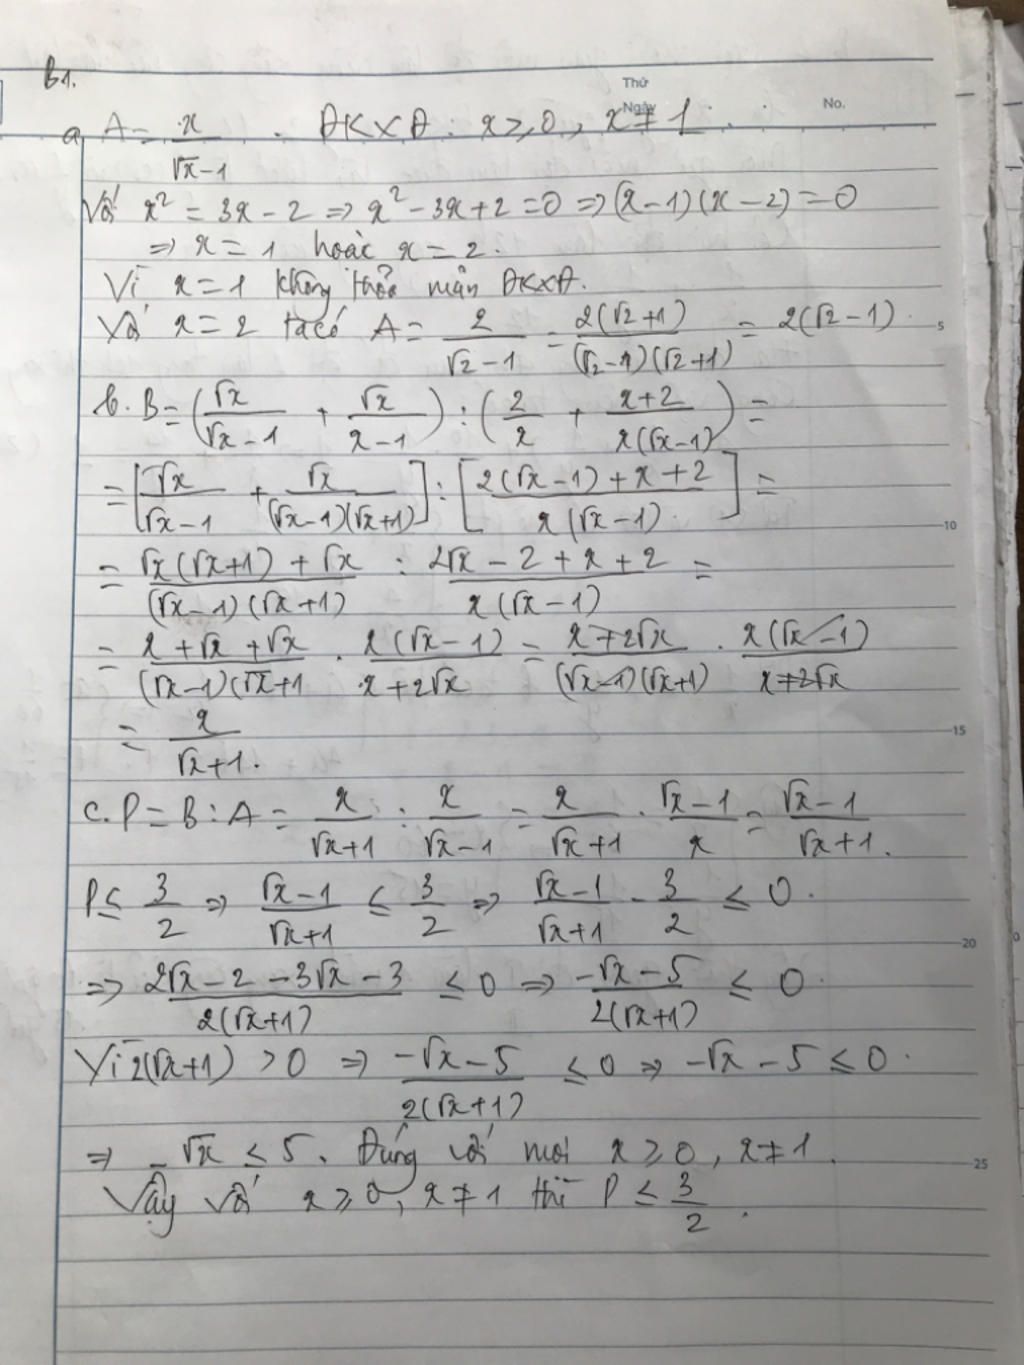 B1.
Thứ
Ngày
No.
a, A = x/(√x-1) . ĐKXĐ: x ≥ 0, x ≠ 1.
Với x² = 3x - 2 => x² - 3x + 2 = 0 => (x-1)(x-2) = 0
=> x = 1 hoặc x = 2.
Vì x = 1 không thỏa mãn ĐKXĐ.
Với x = 2 ta có A = 2/(√2-1) = 2(√2+1)/((√2-1)(√2+1)) = 2(√2-1).
5
b. B = (√x/(√x-1) + √x/(x-1)) : (2/x + (x+2)/(x(√x-1))) =
= [√x/(√x-1) + √x/((√x-1)(√x+1))] : [(2(√x-1)+x+2)/(x(√x-1))] =
10
= (√x(√x+1)+√x)/((√x-1)(√x+1)) : (2√x-2+x+2)/(x(√x-1)) =
= (x+√x+√x)/((√x-1)(√x+1) . x(√x-1)/(x+2√x) = (x+2√x)/((√x-1)(√x+1)) . x(√x-1)/(x+2√x)
= x/(√x+1).
15
c. P = B : A = x/(√x+1) : x/(√x-1) = x/(√x+1) . (√x-1)/x = (√x-1)/(√x+1).
P ≤ 3/2 => (√x-1)/(√x+1) ≤ 3/2 => (√x-1)/(√x+1) - 3/2 ≤ 0.
20
=> (2√x-2-3√x-3)/(2(√x+1)) ≤ 0 => (-√x-5)/(2(√x+1)) ≤ 0.
Vì 2(√x+1) > 0 => (-√x-5)/(2(√x+1)) ≤ 0 => -√x-5 ≤ 0.
=> -√x ≤ 5. Đúng với mọi x ≥ 0, x ≠ 1.
25
Vậy với x ≥ 0, x ≠ 1 thì P ≤ 3/2.